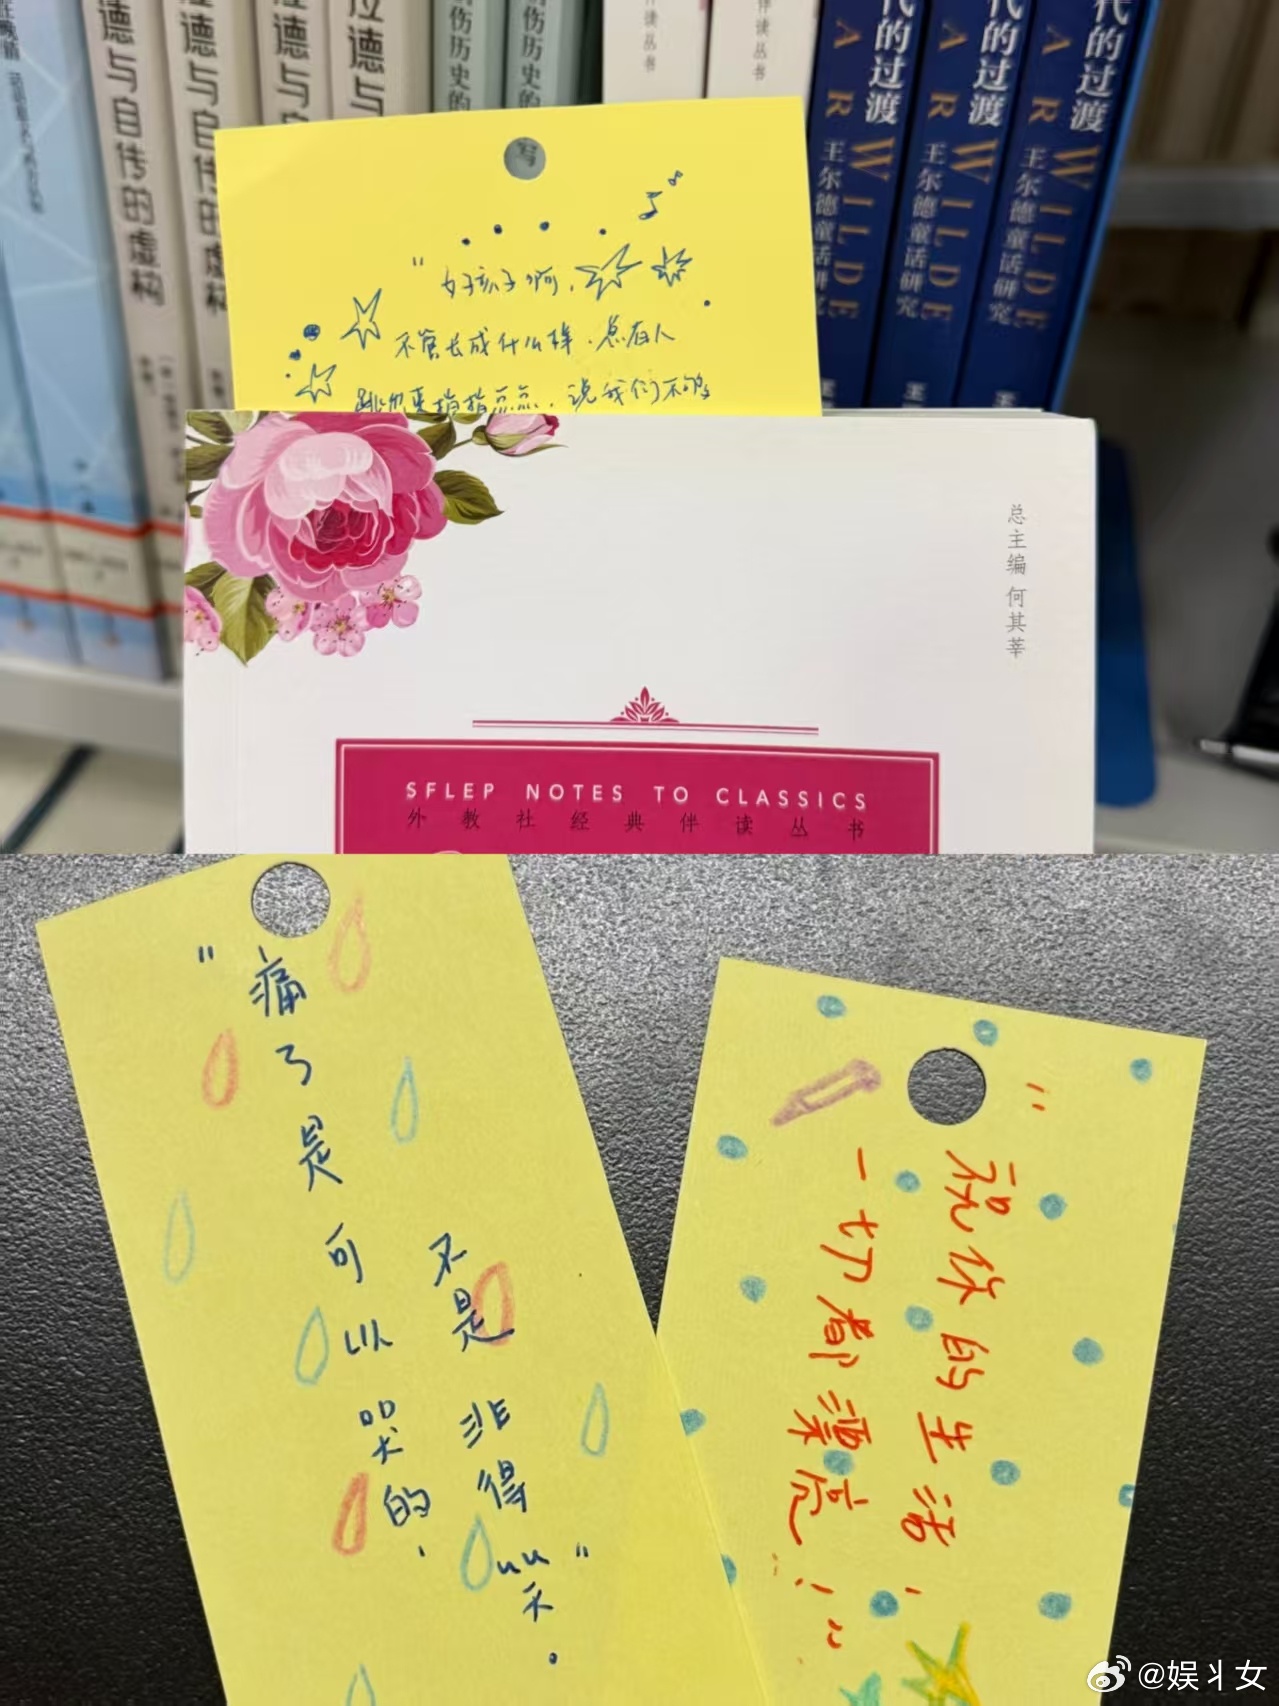 拉德与自传的虚构
拉德与自传的虚构
拉德与
拉德与
伤历史的
伤历史的
伴读丛书
伴读丛书
代的过渡
WILDE
王尔德童话研究
代的过渡
WILDE
王尔德童话研究
代的过渡
WILDE
王尔德童话研究
写
"好孩子啊，
不管长成什么样，总有人
跳出来指指点点，说我们不够
总主编 何其莘
SFLEP NOTES TO CLASSICS
外教社经典伴读丛书
"痛了是可以哭的，
不是非得哭。"
"祝你的生活，
一切都漂亮！"
@娱斗女